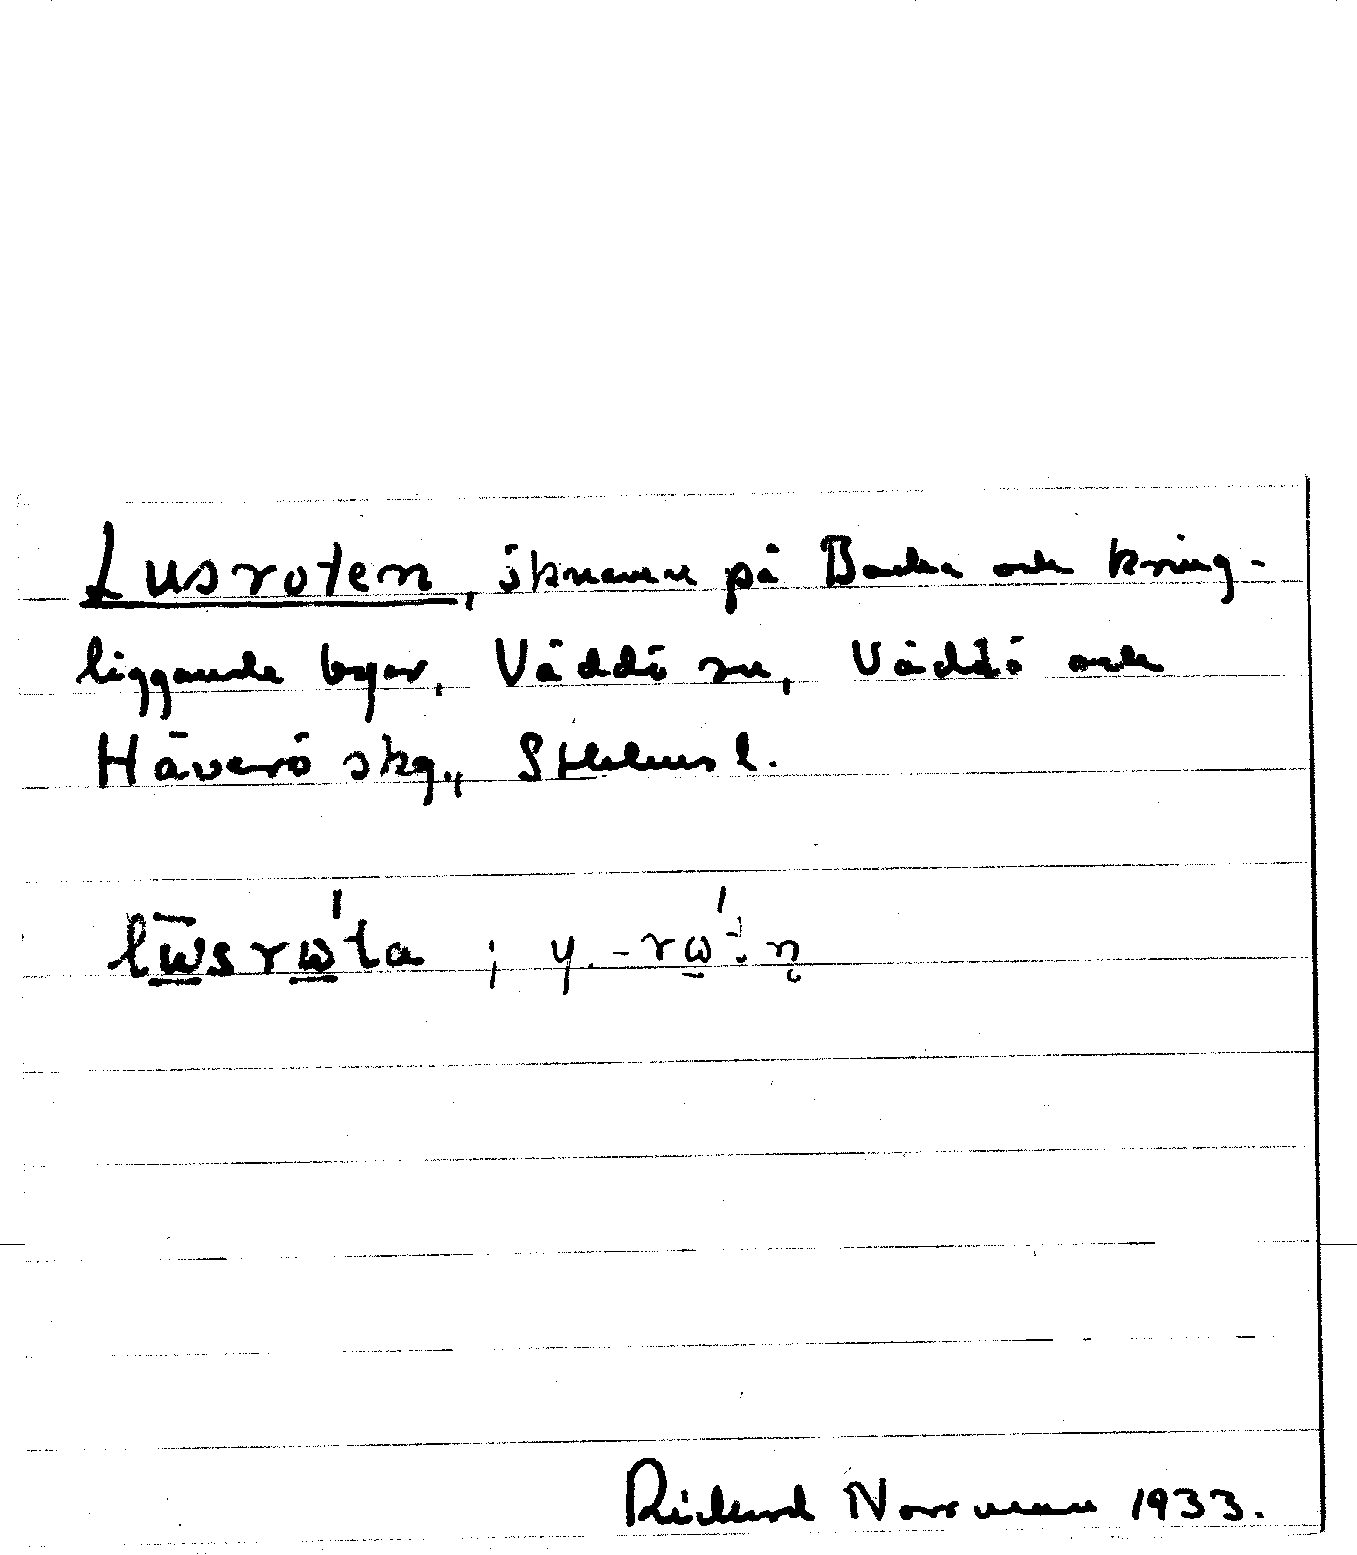 Lusroten, öknamn på Backa och kring-
liggande byar, Väddö sn, Väddö och
Häverö skg., Sthlms l.
lūsrω'ta ; y. -rω'
Rickard Norrman 1933.